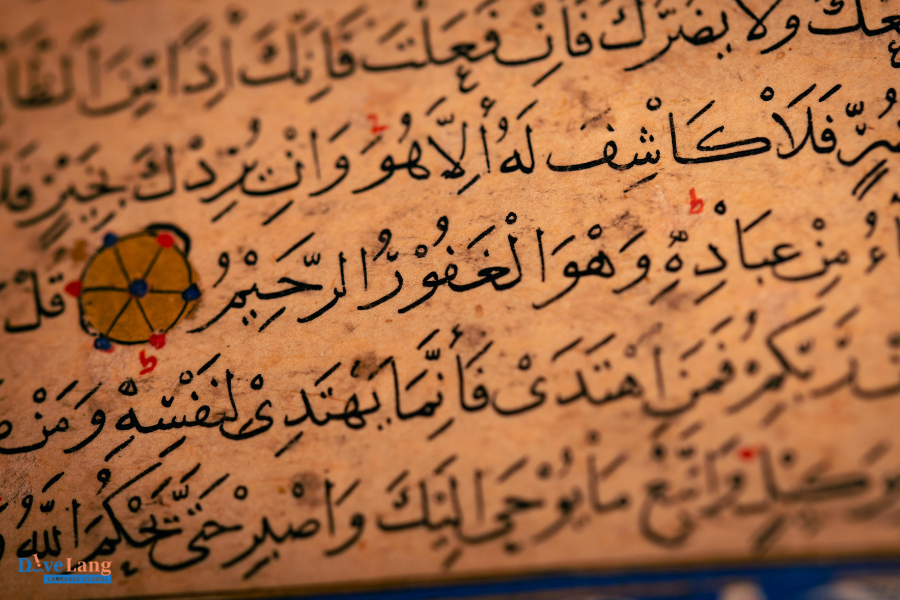 ـعك ولا يضرك فان فعلت فانك اذا من الظا
ضر فلا كاشف له الا هو وان يردك بخير فلا
ـاء من عباده وهو الغفور الرحيم قل
من ربكم فمن اهتدى فانما يهتدي لنفسه ومن
بوكيل واتبع ما يوحى اليك واصبر حتى يحكم الله
DiveLang